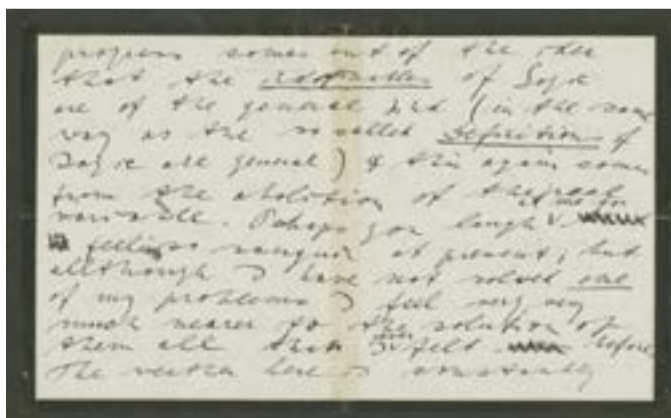 progress comes out of the idea
that the indefinables of Logic
are of the general kind (in the same
way as the so called Definitions of
Logic are general) & this again comes
from the abolition of the real
variable. Perhaps you laugh at me for
feeling so sanguine at present; but
although I have not solved one
of my problems I feel very very
much nearer to the solution of
them all than I ever felt before.
The weather here is constantly